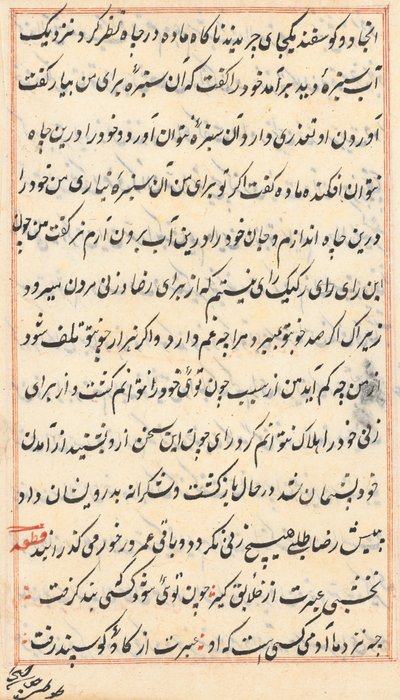 انجا دو کوسفند یکجای چریدند ناکاه ماده در چاه نظر کرد نزدیک
آب سبزهٔ دید بر آمد خود را کفت که آن سبزه برای من بیار کفت
آوردن او تعذری دارد آن سبزه نتوان آورد و خود را درین چاه
نتوان افکند ماده کفت اکر تو برای من آن سبزه نیاری من خود را
درین چاه اندازم و جان خود را درین آب برون آرم نر کفت من چون
این رای رکیک رای نیستم که از برای رضاء زنی مردن میرود
زیراک اکر صد چو تو بمیرد مرا چه غم دارد و اکر هزار چو تو تلف شود
از من چه کم آید من از سبب چون توی خود را نتوانم کشت و از برای
زنی خود را هلاک نتوانم کرد رای چون این سخن از و بشنید از آمدن
خود پشیمان شد در حال باز کشت و شکرانه بدرویشان داد
بیش رضا طلبی هیچ زنی نکرد و باقی عمر در خورمی کذرانید قطعه
نخشبی عبرت از خلایق کیر چون توی شود کسی بند کرفت
چه نر د ما آدمی کسی است که او عبرت از کاو کوسپند رفت
طوطی